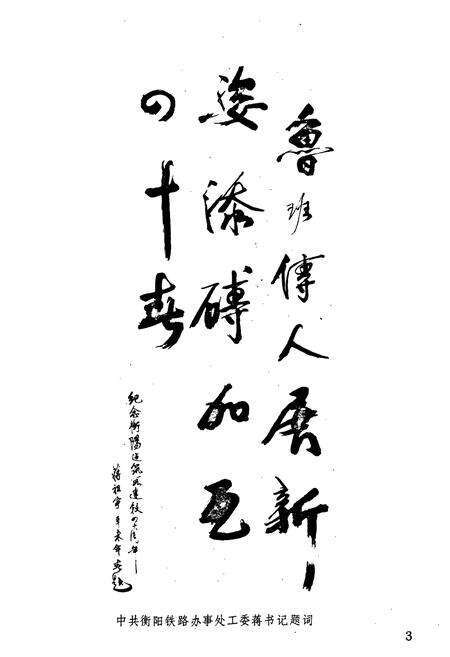 魯班傳人展新
姿添磚加瓦
四十春
紀念衡陽建筑段建段四十周年
蒋祖寧辛未年春題
中共衡阳铁路办事处工委蒋书记题词
3